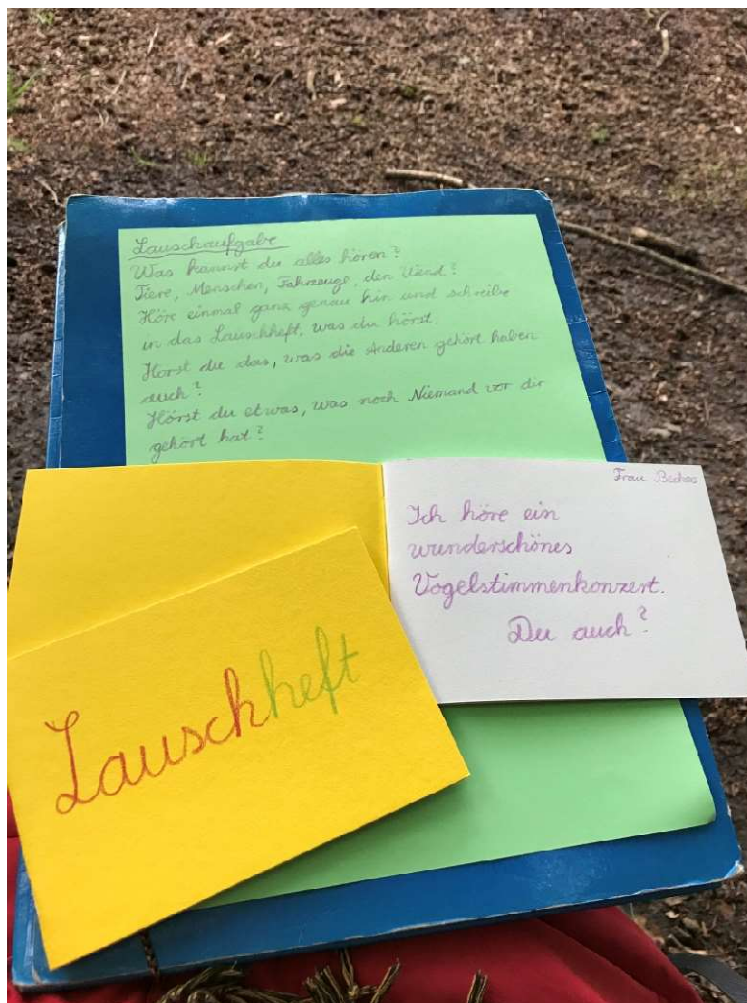 Lauschaufgabe
Was kannst du alles hören?
Tiere, Menschen, Fahrzeuge, den Wind?
Höre einmal ganz genau hin und schreibe
in das Lauschheft, was du hörst.
Hörst du das, was die Anderen gehört haben
auch?
Hörst du etwas, was noch Niemand vor dir
gehört hat?
Frau
Ich höre ein
wunderschönes
Vogelstimmenkonzert.
Du auch?
Lauschheft